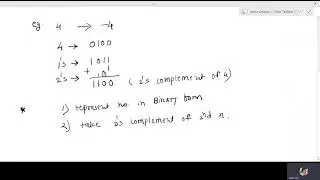 eg 4 → -4
4 → 0100
1's → 1011
+ 1
2's → 1100 ( 2's complement of 4)
* 1) represent no. in Binary form
2) take 2's complement of 2nd n.